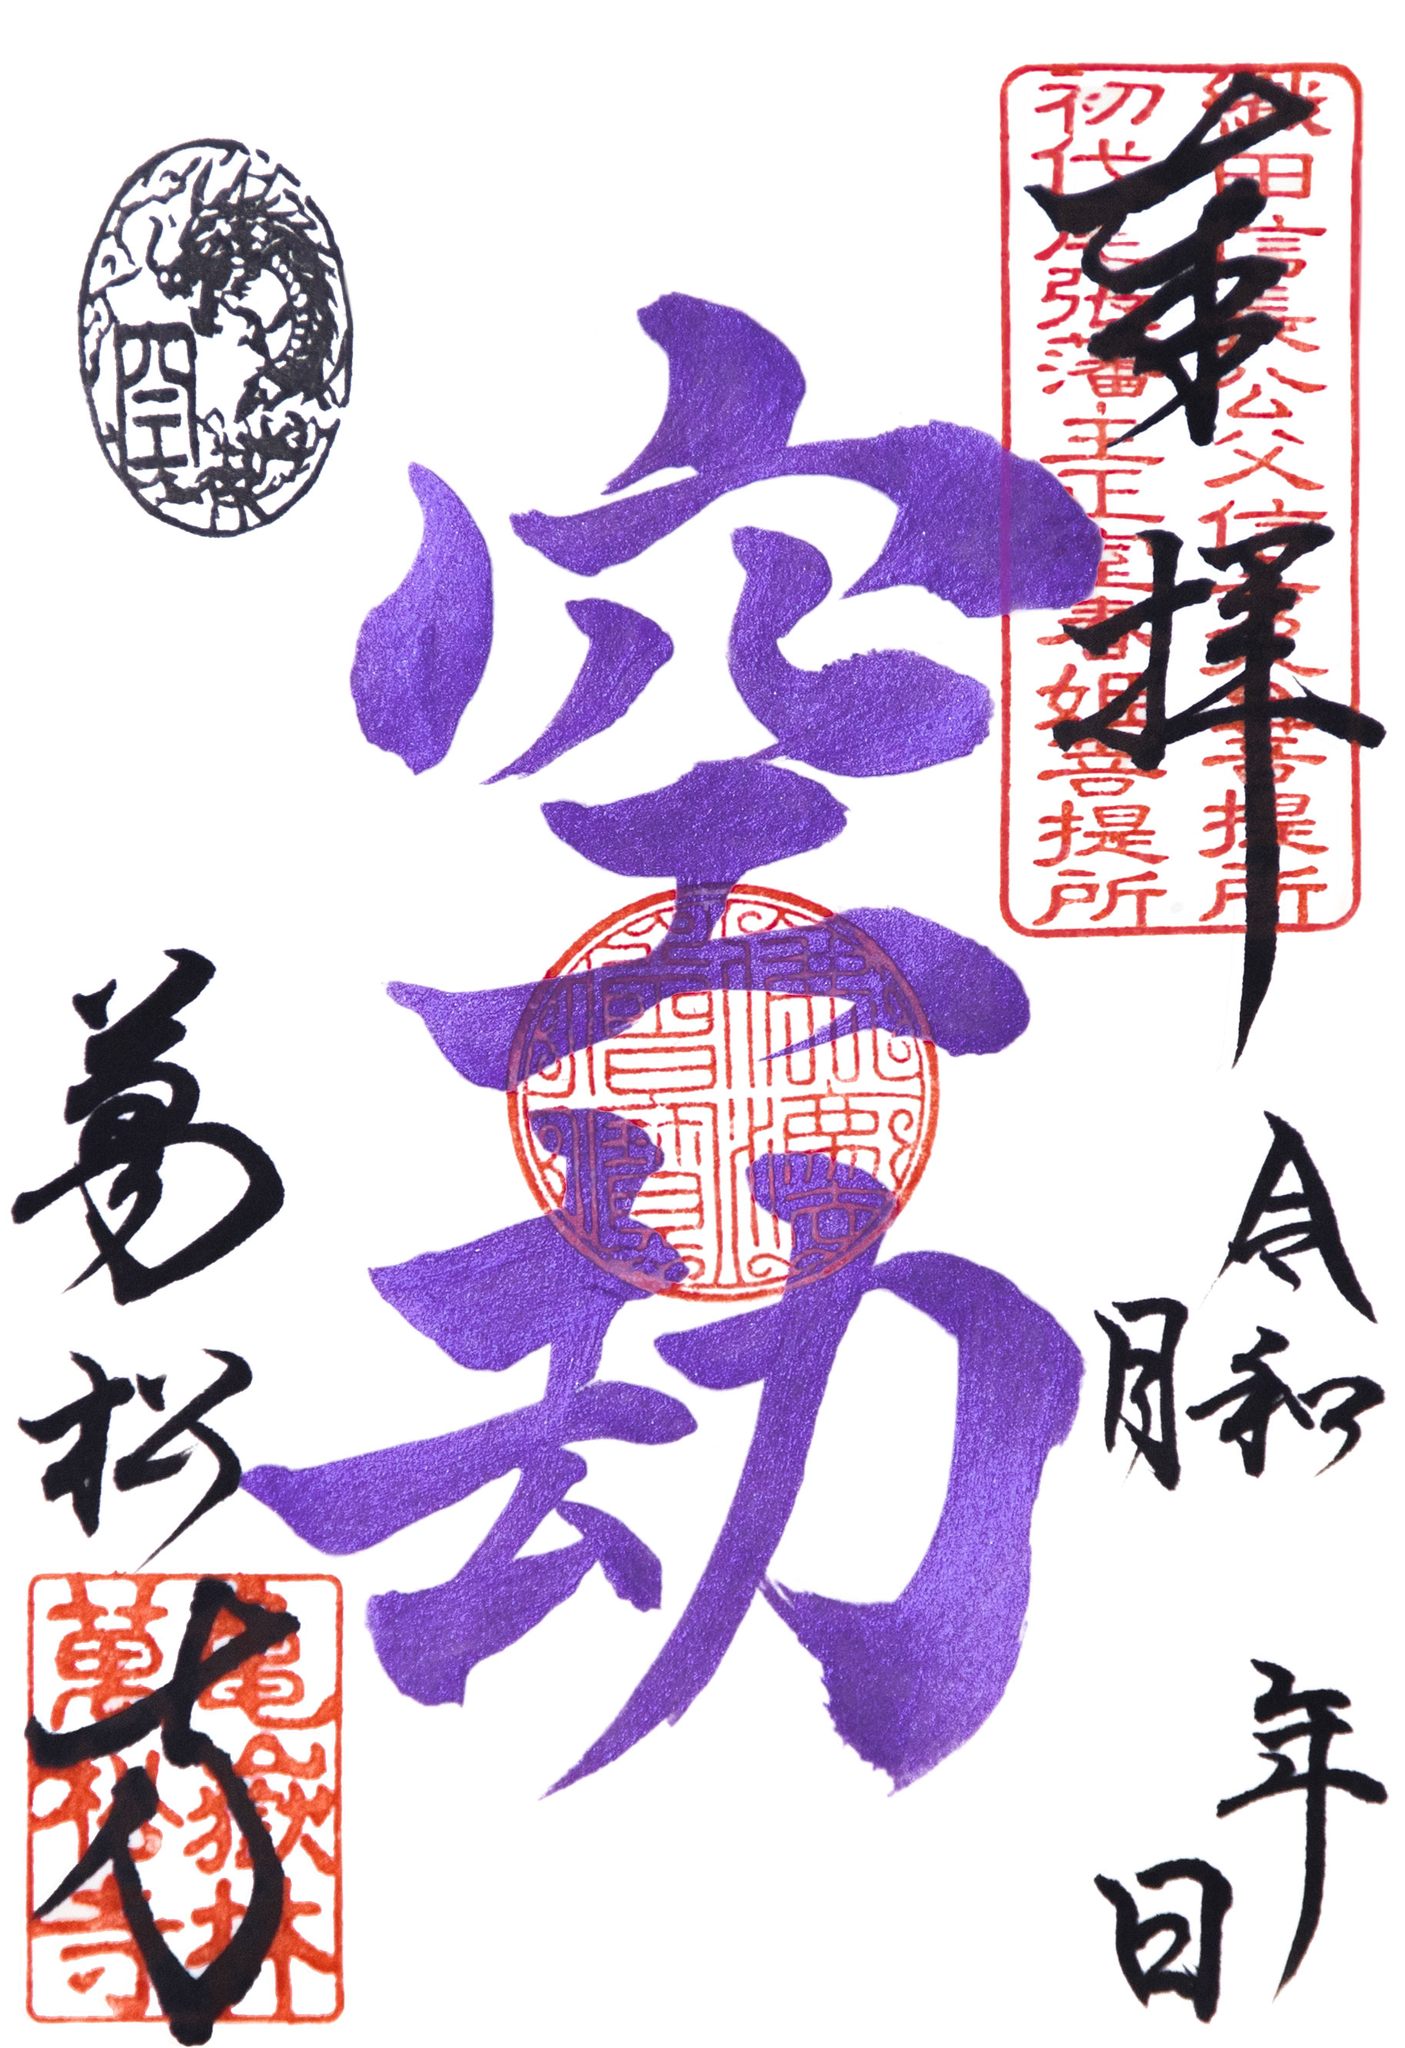 奉拝
織田信長公父信秀公菩提所
初代尾張藩主正室春姫菩提所
令和 年
月 日
空劫
佛法僧寳
萬松寺
亀嶽林
萬松寺